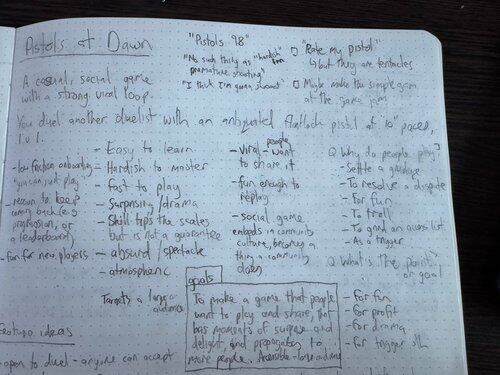 Pistols at Dawn
A casual, social game
with a strong viral loop.
You duel another duelist with an antiquated flintlock pistol at 10 paces,
1v1.
"Pistols 98"
"No such thing as "hardish"
premature shooting"
"I think I'm gonna shoot"
"Rate my pistol"
but they are tentacles
Maybe make the simple gam
at the same jam
- low friction onboarding
"you can just play"
- reason to keep
coming back (e.g
progression, or
a leaderboard)
- fun for new players
- Easy to learn
- Hardish to master
- fast to play
- Surprising / drama
- Skill tips the scales
but is not a guarantee
- absurd / spectacle
- atmospheric
Targets a
audience
- viral - people want
to share it
- fun enough to
replay
- social game
embeds in community
culture, becoming a
thing a community
does
Q Why do people play?
- Settle a grudge
- To resolve a dispute
- for fun
- To troll
- To get on access list
- As a trigger
Q What is the
or goal
- for fun
- for profit
- for drama
- for trigger
goals
To make a game that people
want to play and share, that
has moments of surprise and
delight, and propagates to
more people. Accessible +
feature ideas
- open to duel - anyone can accept